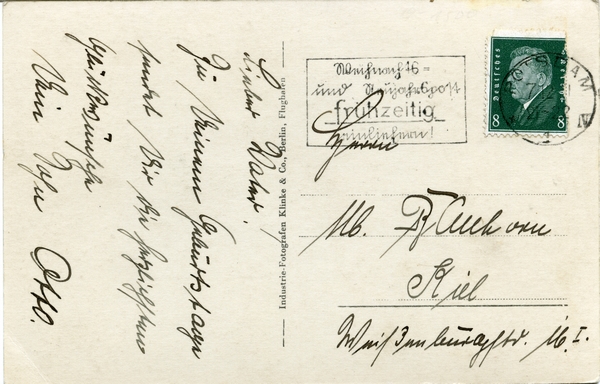 Lieber Vater!
Zu Deinem Geburtstage
sendet Dir die herzlichsten
Glückwünsche
Dein Sohn Otto.
Industrie-Fotografen Klinke & Co., Berlin, Flughafen
Weihnachts-
und Neujahrspost
frühzeitig
einliefern!
Deutsches
8 8
POTSDAM
Herrn
Kiel
Weißenburgstr.